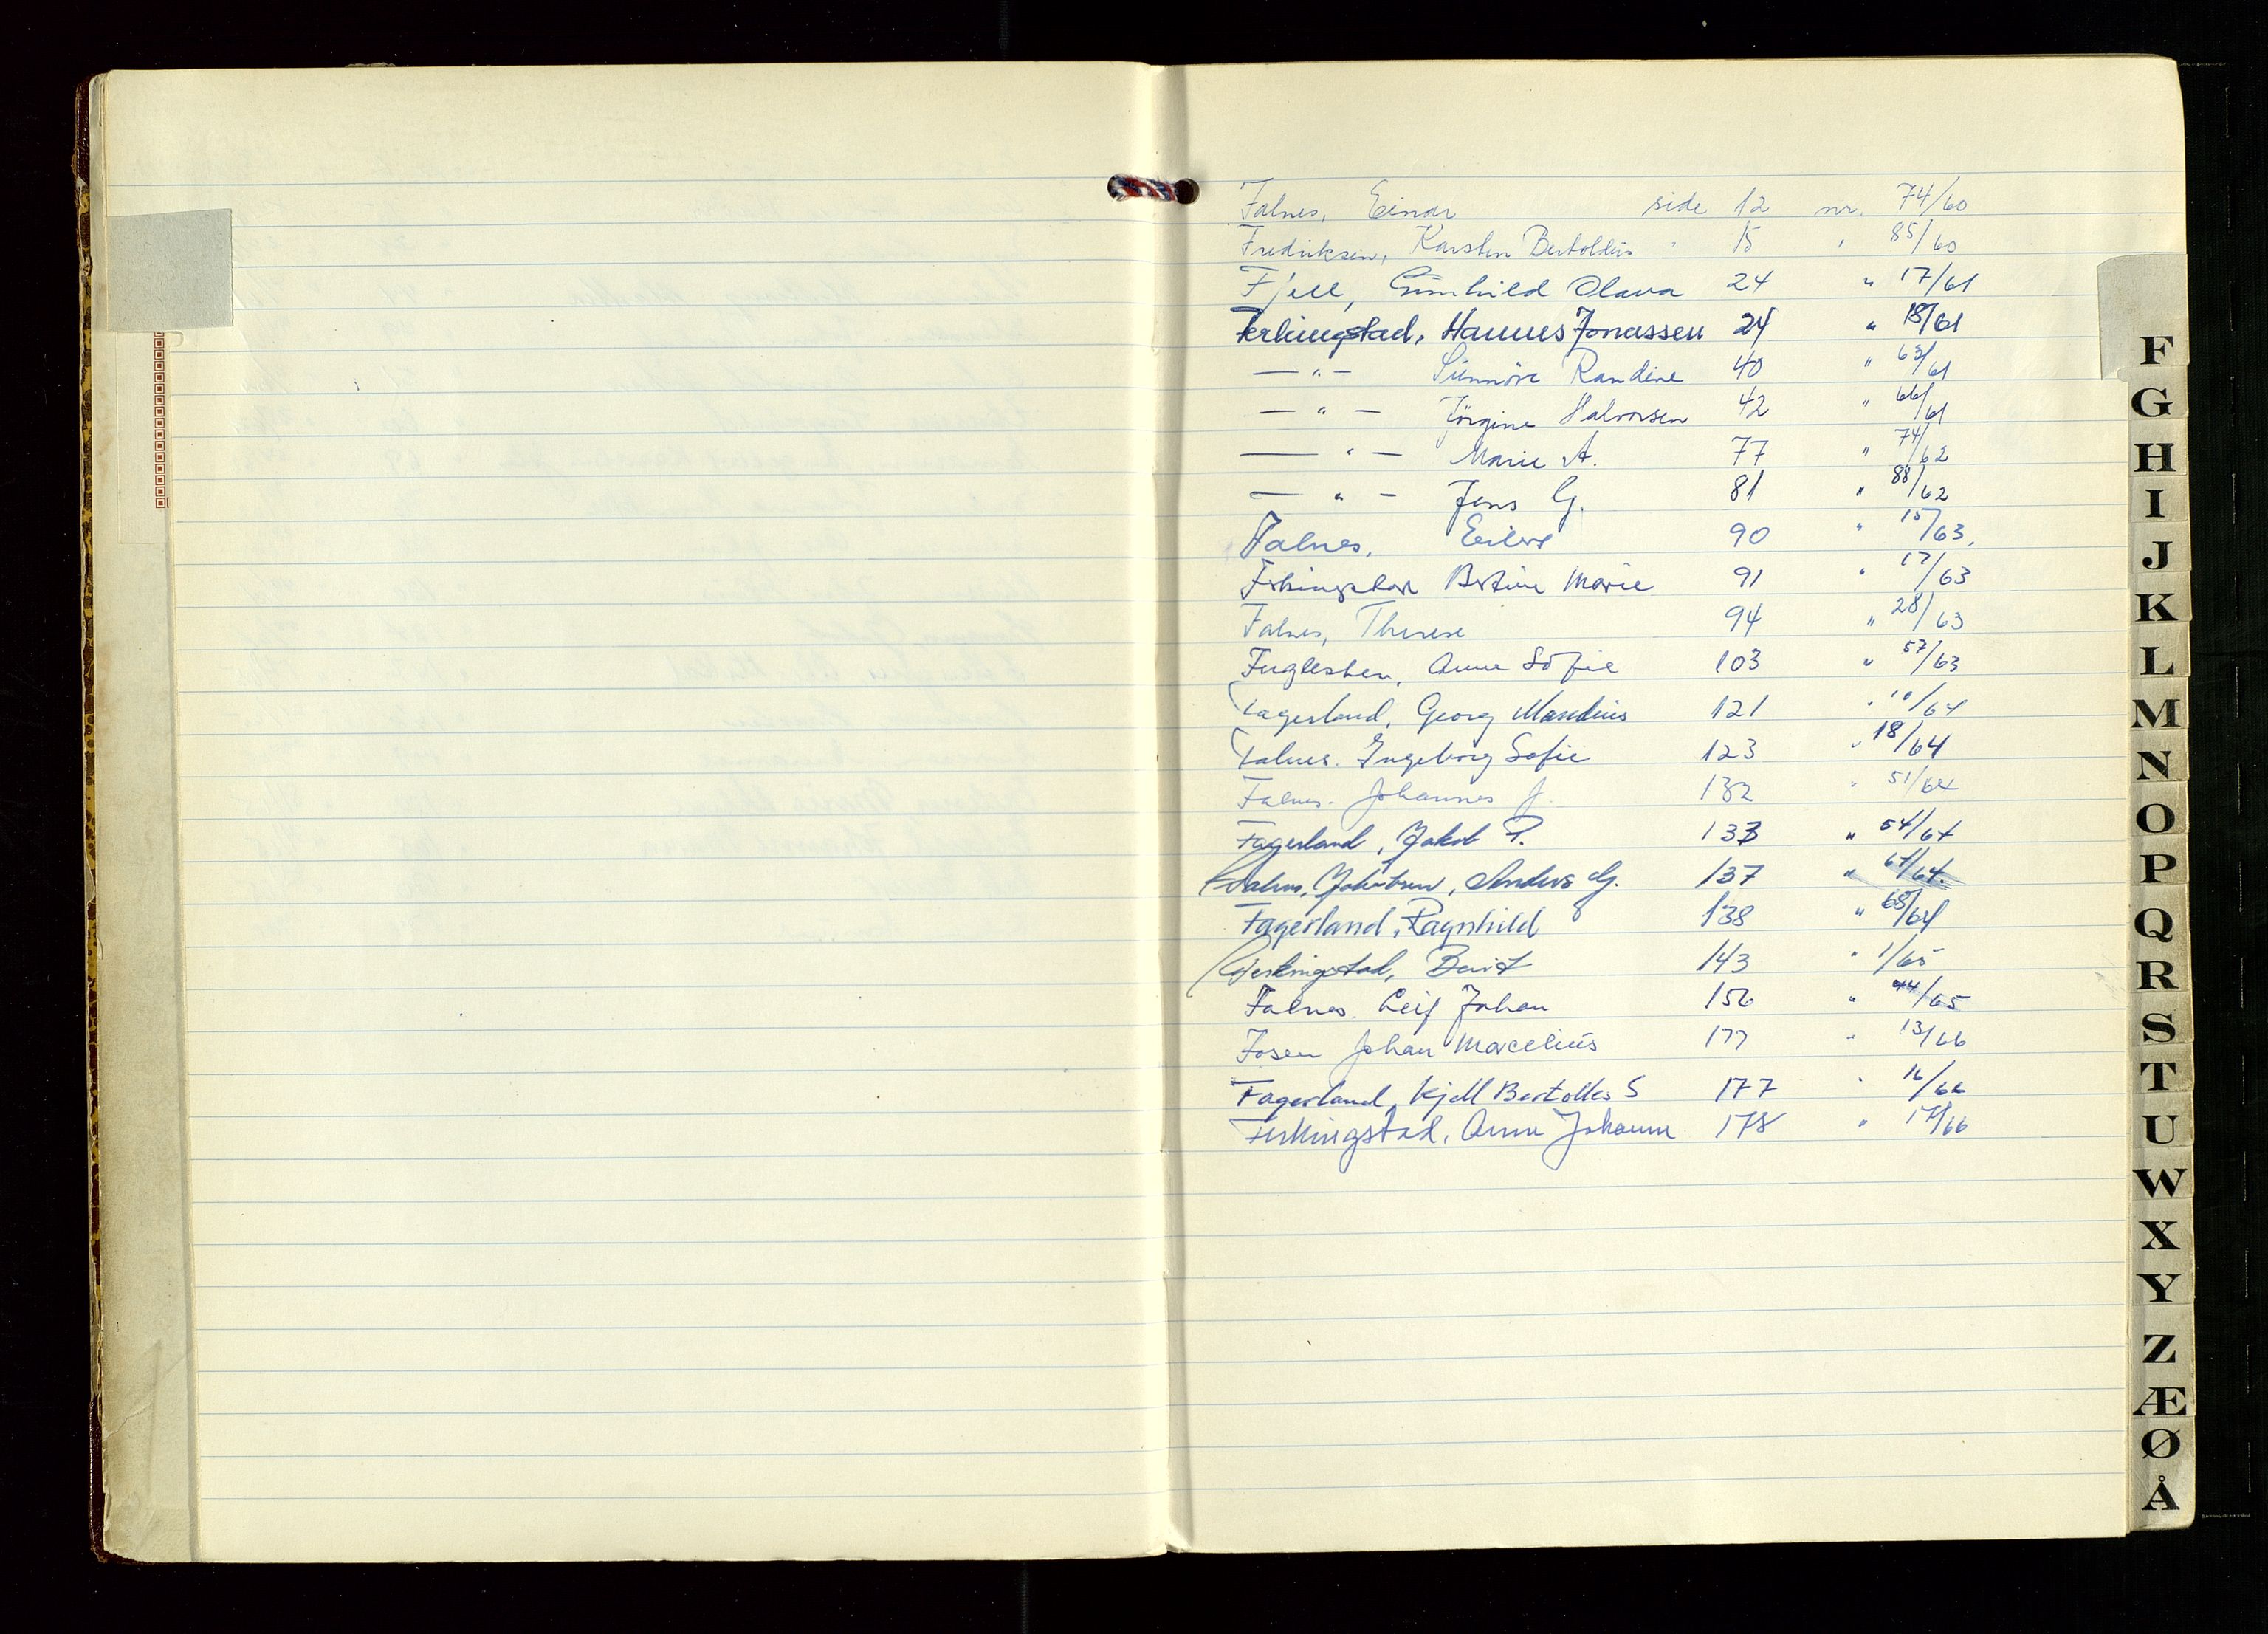 Falnes, Einar side 12 nr. 74/60
Fredriksen, Karsten Bertoldus " 15 " 85/60
Fjell, Gunhild Olava 24 " 17/61
Ferkingstad, Hannes Jonassen 24 " 18/61
— " — Sünnöve Randine 40 " 63/61
— " — Jörgine Halvorsen 42 " 66/61
— " — Marie A. 77 " 74/62
— " — Jens G. 81 " 88/62
Falnes, Eilert 90 " 15/63.
Ferkingstad Bertine Marie 91 " 17/63
Falnes, Therese 94 " 28/63
Fuglesten, Anne Sofie 103 " 57/63
Fagerland, Georg Mandius 121 " 10/64
Falnes. Ingeborg Sofie 123 " 18/64
Falnes. Johannes J. 132 " 51/64
Fagerland, Jakob P. 133 " 54/64
Falnes, Jakobsen, Anders G. 137 " 64/64.
Fagerland, Ragnhild 138 " 68/64
Ferkingstad, Berit 143 " 1/65
Falnes. Leif Johan 156 " 44/65
Fosen Johan Marcelius 177 " 13/66
Fagerland, Kjell Bertolles S 177 " 16/66
Ferkingstad, Anne Johanne 178 " 17/66
F
G
H
I
J
K
L
M
N
O
P
Q
R
S
T
U
W
X
Y
Z
Æ
Ø
Å